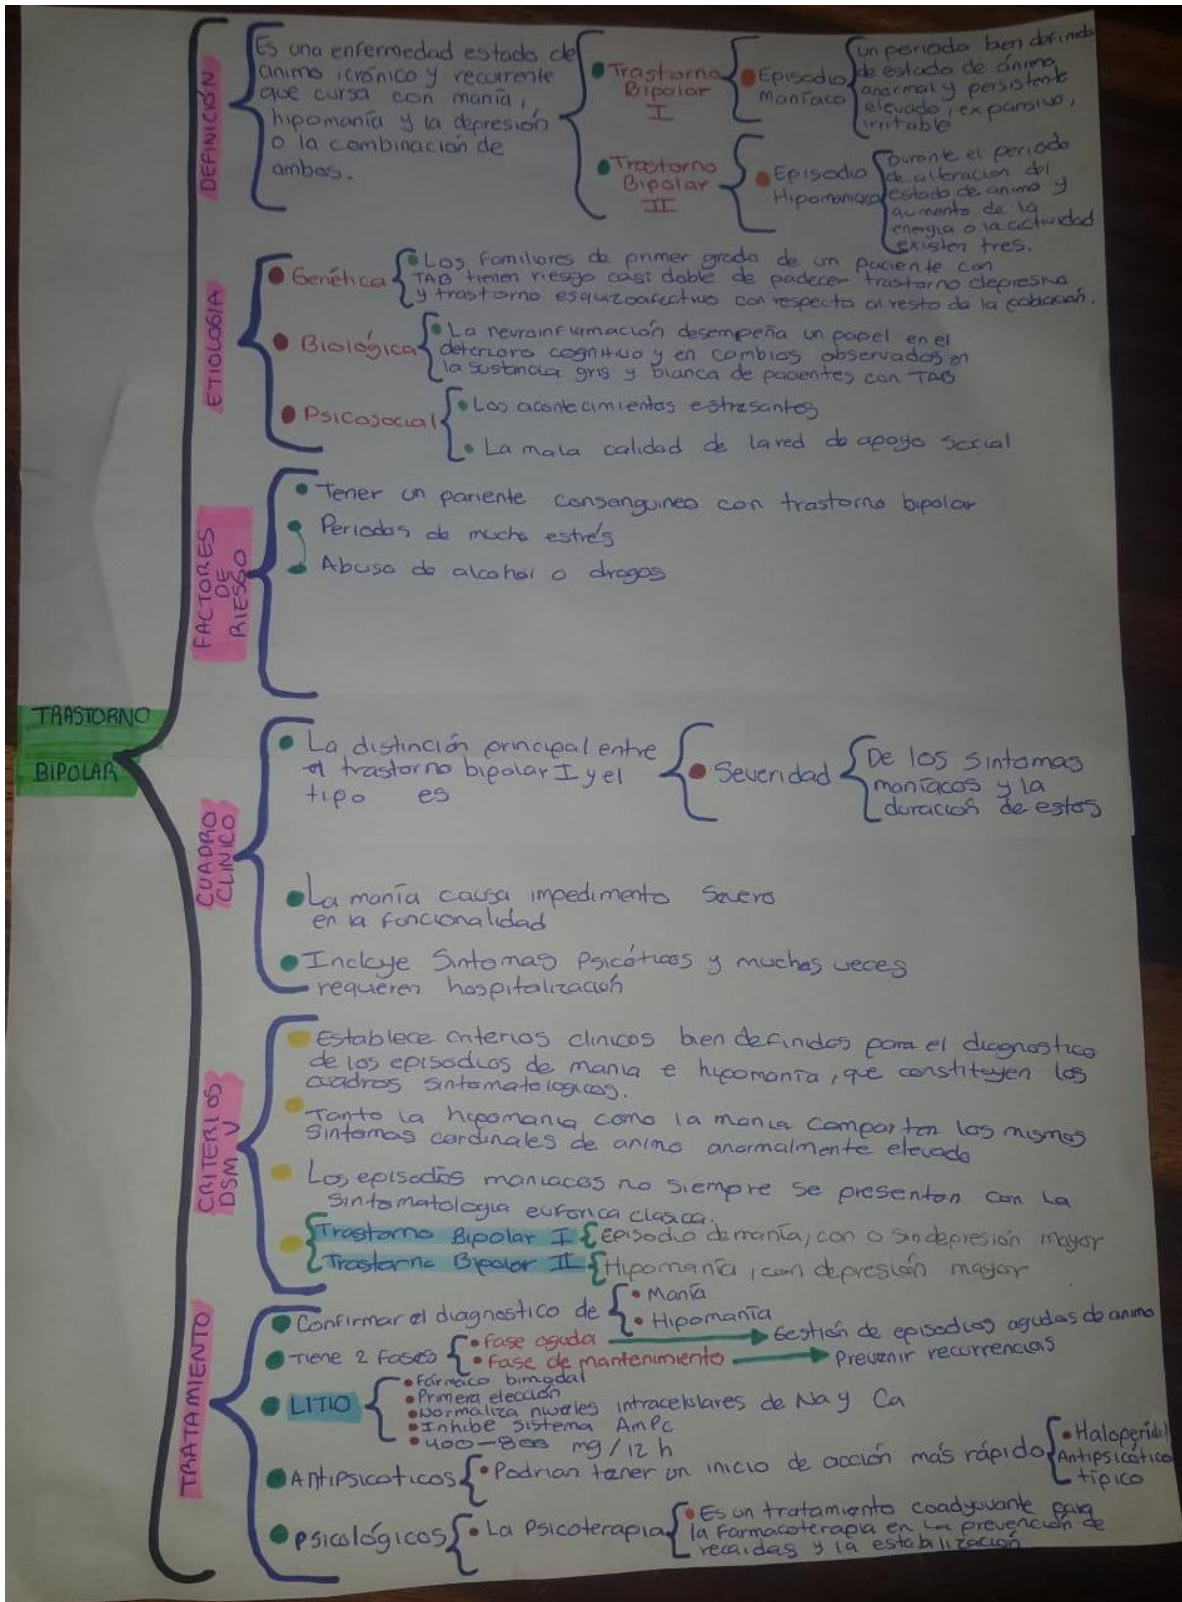 TRASTORNO
BIPOLAR
DEFINICIÓN
Es una enfermedad estado de
animo, crónico y recurrente
que cursa con manía,
hipomanía y la depresión
o la combinación de
ambas.
Trastorno
Bipolar
I
Episodio
Maníaco
un periodo bien definido
de estado de ánimo
anormal y persistente
elevado, expansivo,
irritable
Trastorno
Bipolar
II
Episodio
Hipomaniaco
Durante el periodo
de alteracion del
estado de animo y
aumento de la
energia o la actividad
existen tres.
ETIOLOGIA
Genética
Los familiares de primer grado de un paciente con
TAB tienen riesgo casi doble de padecer trastorno depresivo
y trastorno esquizoafectivo con respecto al resto de la población.
Biológica
La neuroinflamación desempeña un papel en el
deterioro cognitivo y en cambios observados en
la sustancia gris y blanca de pacientes con TAB
Psicosocial
Los acontecimientos estresantes
La mala calidad de la red de apoyo social
FACTORES
DE
RIESGO
Tener un pariente consanguineo con trastorno bipolar
Periodos de mucho estrés
Abuso de alcohol o drogas
CUADRO
CLINICO
La distinción principal entre
el trastorno bipolar I y el
tipo es
Severidad
De los sintomas
maníacos y la
duración de estos
La manía causa impedimento severo
en la funcionalidad
Incluye Sintomas Psicóticos y muchas veces
requieren hospitalización
CRITERIOS
DSM V
Establece criterios clinicos bien definidos para el diagnostico
de los episodios de mania e hipomanía, que constituyen los
cuadros sintomatologicos.
Tanto la hipomania como la mania comparten los mismos
sintomas cardinales de animo anormalmente elevado
Los episodios maniacos no siempre se presentan con la
sintomatologia euforica clasica.
Trastorno Bipolar I Episodio de manía, con o sin depresión mayor
Trastorno Bipolar II Hipomanía, con depresión mayor
TRATAMIENTO
Confirmar el diagnostico de
Manía
Hipomanía
Tiene 2 fases
Fase aguda
Gestión de episodios agudos de animo
Fase de mantenimiento
Prevenir recurrencias
LITIO
Fármaco bimodal
Primera elección
Normaliza niveles intracelulares de Na y Ca
Inhibe sistema AmPc
400-800 mg/12 h
Antipsicoticos
Podrian tener un inicio de acción más rápido
Haloperidol
Antipsicótico
típico
Psicológicos
La Psicoterapia
Es un tratamiento coadyuvante para
la farmacoterapia en la prevención de
recaidas y la estabilización